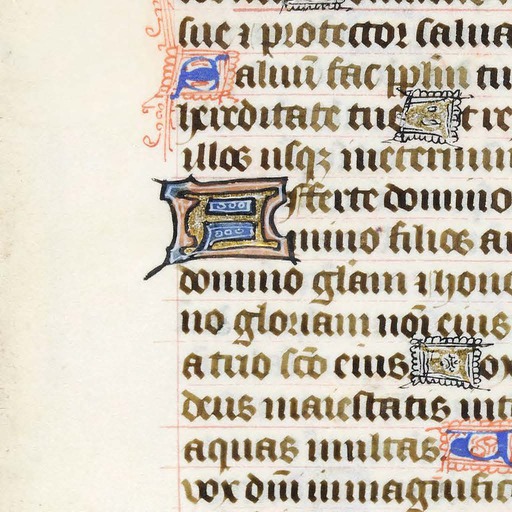 sue ⁊ protector salua
Saluū fac pplm tu
hereditate tue Et re
illos usqꝫ ineternum
Afferte domino
mino filios ar
domino glām ⁊ hono
no gloriam noī eius
atrio scō eius Vox
deus maiestatis int
aquas multas V
vox dm̄ inmagnific